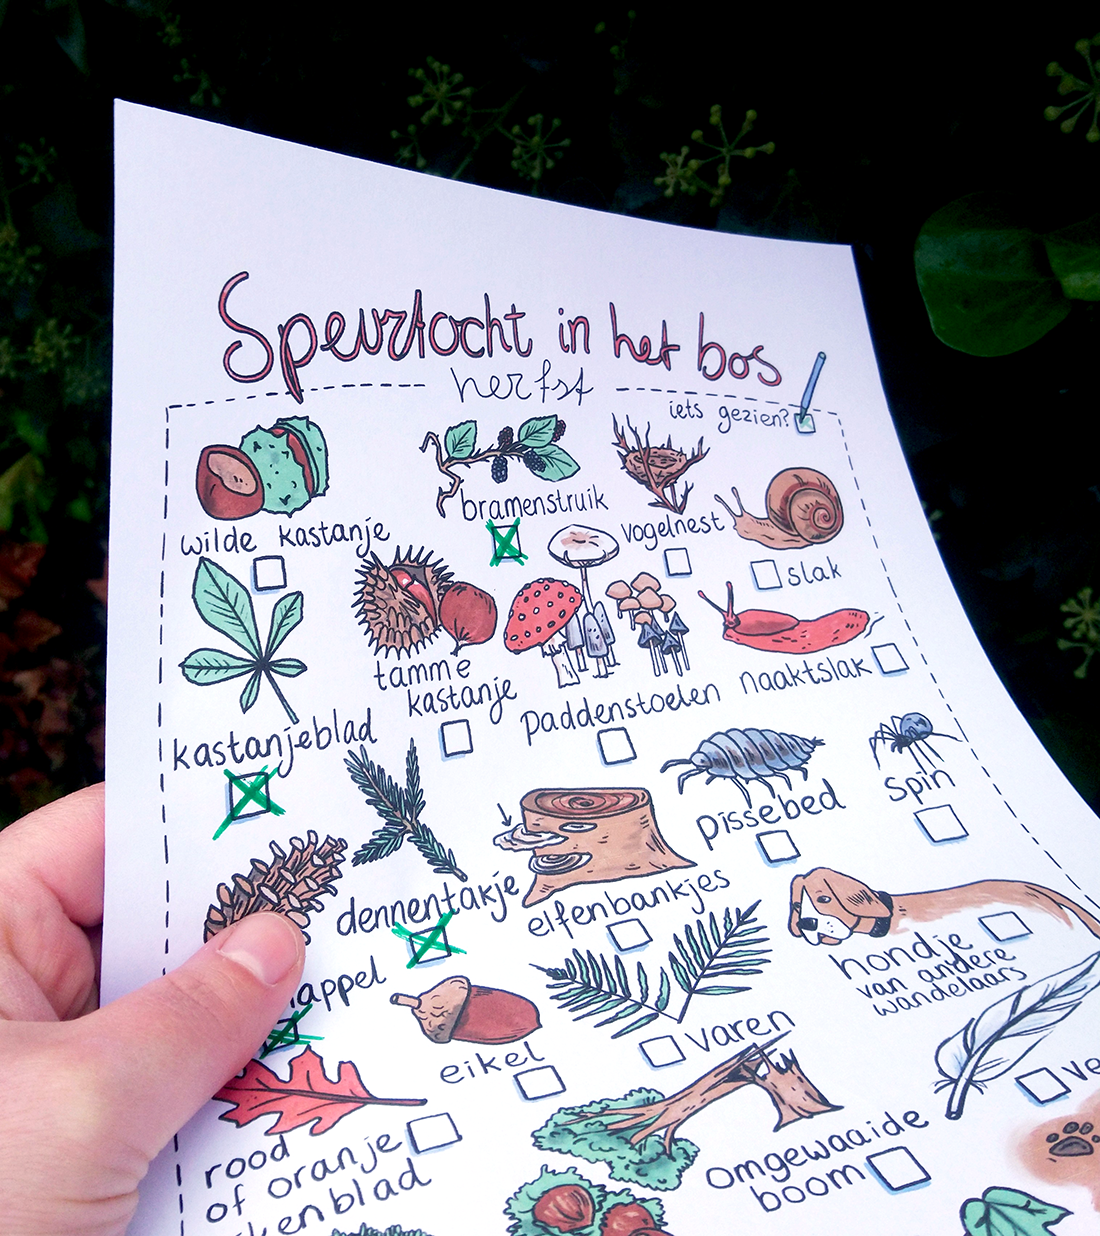 Speurtocht in het bos
herfst
iets gezien?
wilde kastanje
bramenstruik
vogelnest
slak
kastanjeblad
tamme
kastanje
paddenstoelen
naaktslak
dennentakje
elfenbankjes
pissebed
spin
appel
eikel
varen
hondje
van andere
wandelaars
rood
of oranje
kenblad
omgewaaide
boom
ve